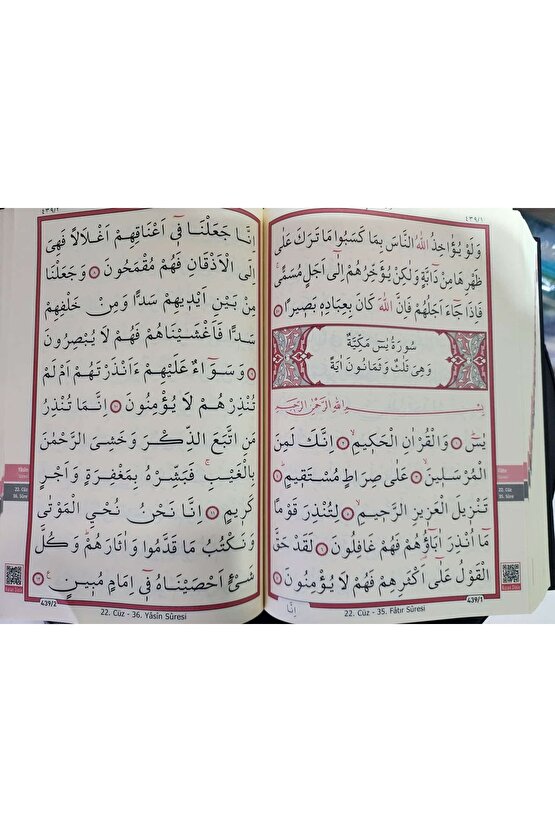 ٤٣٩/١
وَلَوْ يُؤَاخِذُ اللّٰهُ النَّاسَ بِمَا كَسَبُوا مَا تَرَكَ عَلٰى
ظَهْرِهَا مِنْ دَٓابَّةٍ وَلٰكِنْ يُؤَخِّرُهُمْ اِلٰٓى اَجَلٍ مُسَمًّىۚ
فَاِذَا جَٓاءَ اَجَلُهُمْ فَاِنَّ اللّٰهَ كَانَ بِعِبَادِه۪ بَص۪يرًا
سُورَةُ يٰسٓ مَكِّيَّةٌ
وَهِيَ ثَلٰثٌ وَثَمَانُونَ اٰيَةً
بِسْمِ اللّٰهِ الرَّحْمٰنِ الرَّح۪يمِ
يٰسٓ ١ وَالْقُرْاٰنِ الْحَك۪يمِ ٢ اِنَّكَ لَمِنَ
الْمُرْسَل۪ينَ ٣ عَلٰى صِرَاطٍ مُسْتَق۪يمٍ ٤
تَنْز۪يلَ الْعَز۪يزِ الرَّح۪يمِ ٥ لِتُنْذِرَ قَوْمًا
مَٓا اُنْذِرَ اٰبَٓاؤُ۬هُمْ فَهُمْ غَافِلُونَ ٦ لَقَدْ حَقَّ
الْقَوْلُ عَلٰٓى اَكْثَرِهِمْ فَهُمْ لَا يُؤْمِنُونَ ٧
439/1
22. Cüz - 35. Fâtır Sûresi
اِنَّا
٤٣٩/٢
اِنَّا جَعَلْنَا ف۪ٓي اَعْنَاقِهِمْ اَغْلَالًا فَهِيَ
اِلَى الْاَذْقَانِ فَهُمْ مُقْمَحُونَ ٨ وَجَعَلْنَا
مِنْ بَيْنِ اَيْد۪يهِمْ سَدًّا وَمِنْ خَلْفِهِمْ
سَدًّا فَاَغْشَيْنَاهُمْ فَهُمْ لَا يُبْصِرُونَ
٩ وَسَوَٓاءٌ عَلَيْهِمْ ءَاَنْذَرْتَهُمْ اَمْ لَمْ
تُنْذِرْهُمْ لَا يُؤْمِنُونَ ١٠ اِنَّمَا تُنْذِرُ
مَنِ اتَّبَعَ الذِّكْرَ وَخَشِيَ الرَّحْمٰنَ
بِالْغَيْبِۚ فَبَشِّرْهُ بِمَغْفِرَةٍ وَاَجْرٍ
كَر۪يمٍ ١١ اِنَّا نَحْنُ نُحْيِ الْمَوْتٰى
وَنَكْتُبُ مَا قَدَّمُوا وَاٰثَارَهُمْۜ وَكُلَّ
شَيْءٍ اَحْصَيْنَاهُ ف۪ٓي اِمَامٍ مُب۪ينٍ ١٢
439/2
22. Cüz - 36. Yâsîn Sûresi
Yâsîn
22. Cüz
36. Sûre
Fâtır
22. Cüz
35. Sûre